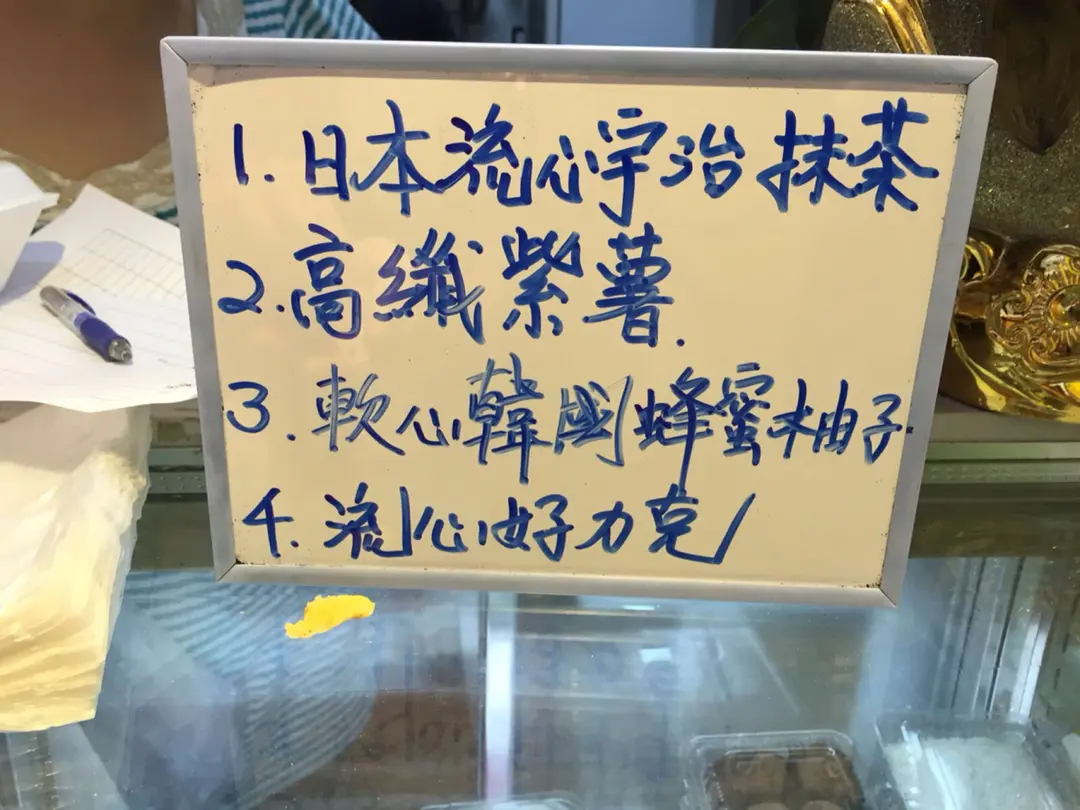 1. 日本流心宇治抹茶
2. 高纖紫薯.
3. 軟心韓國蜂蜜柚子.
4. 流心好力克